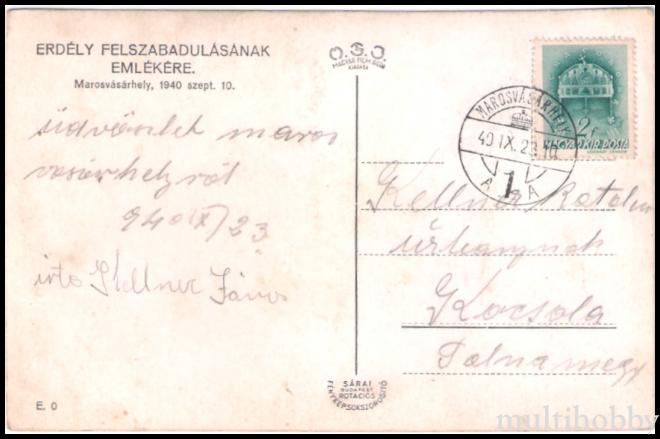 ERDÉLY FELSZABADULÁSÁNAK
EMLÉKÉRE.
Marosvásárhely, 1940 szept. 10.
üdvözlet maros
vásárhelyről
940 IX/23
irta Kellner János
O.S.O.
MAGYAR FILM IRODA
KIADÁSA
MAROSVÁSÁRHELY
40 IX. 23
1
A A
2f
MAGYAR KIR. POSTA
Kellner Katalin
úrhangnak
Kocsola
Tolnamegy
SÁRAI
BUDAPEST
ROTACIÓS
FÉNYKÉPSOKSZOROSÍTÓ
E. 0
multihobby